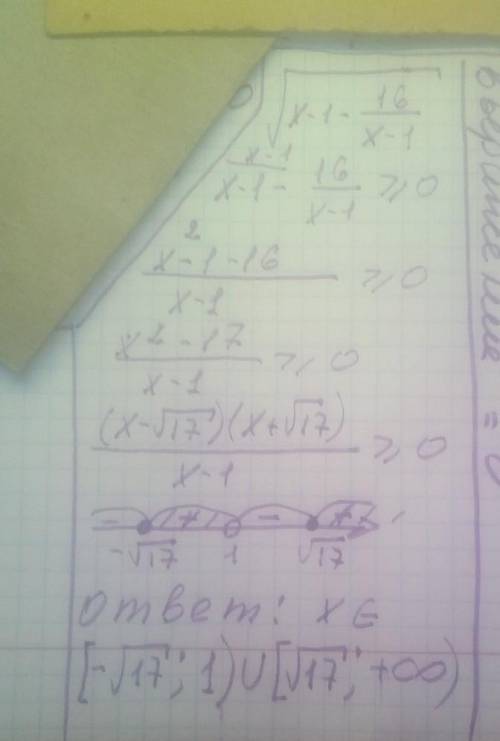 √(x-1 - 16/(x-1))
x-1 - 16/(x-1) ≥ 0
x-1
(x²-1-16)/(x-1) ≥ 0
(x²-17)/(x-1) ≥ 0
((x-√17)(x+√17))/(x-1) ≥ 0
- + - +
-√17 1 √17
ответ: x∈
[-√17; 1)∪[√17; +∞)
= 0